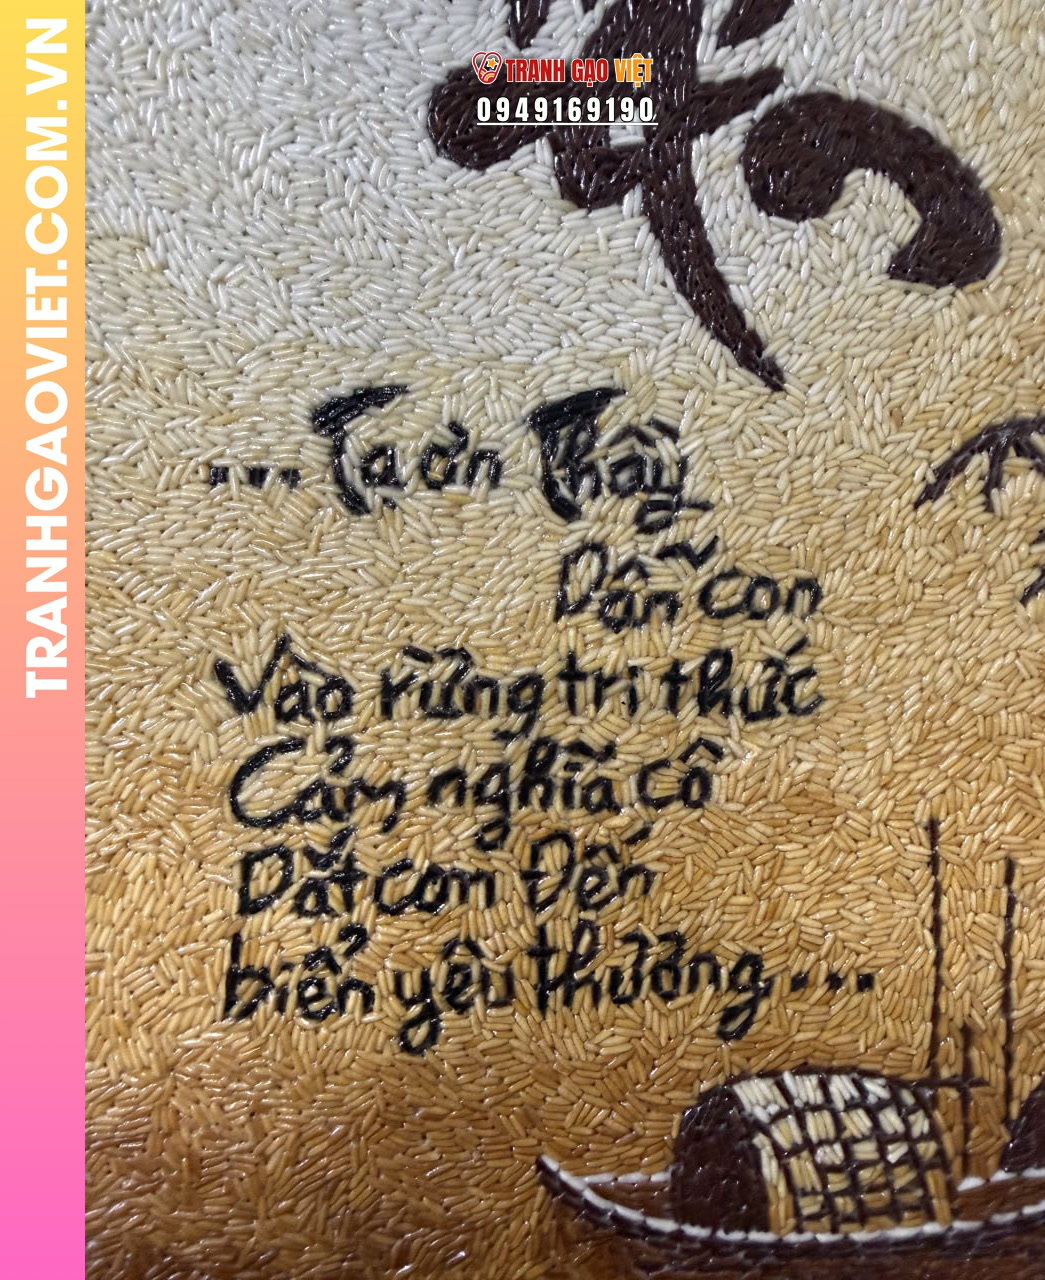 TRANHGAOVIET.COM.VN
TRANH GẠO VIỆT
0949169190
... Tạ ơn Thầy
Dẫn con
Vào rừng tri thức
Cảm nghĩa cô
Dắt con Đến
biển yêu thương...